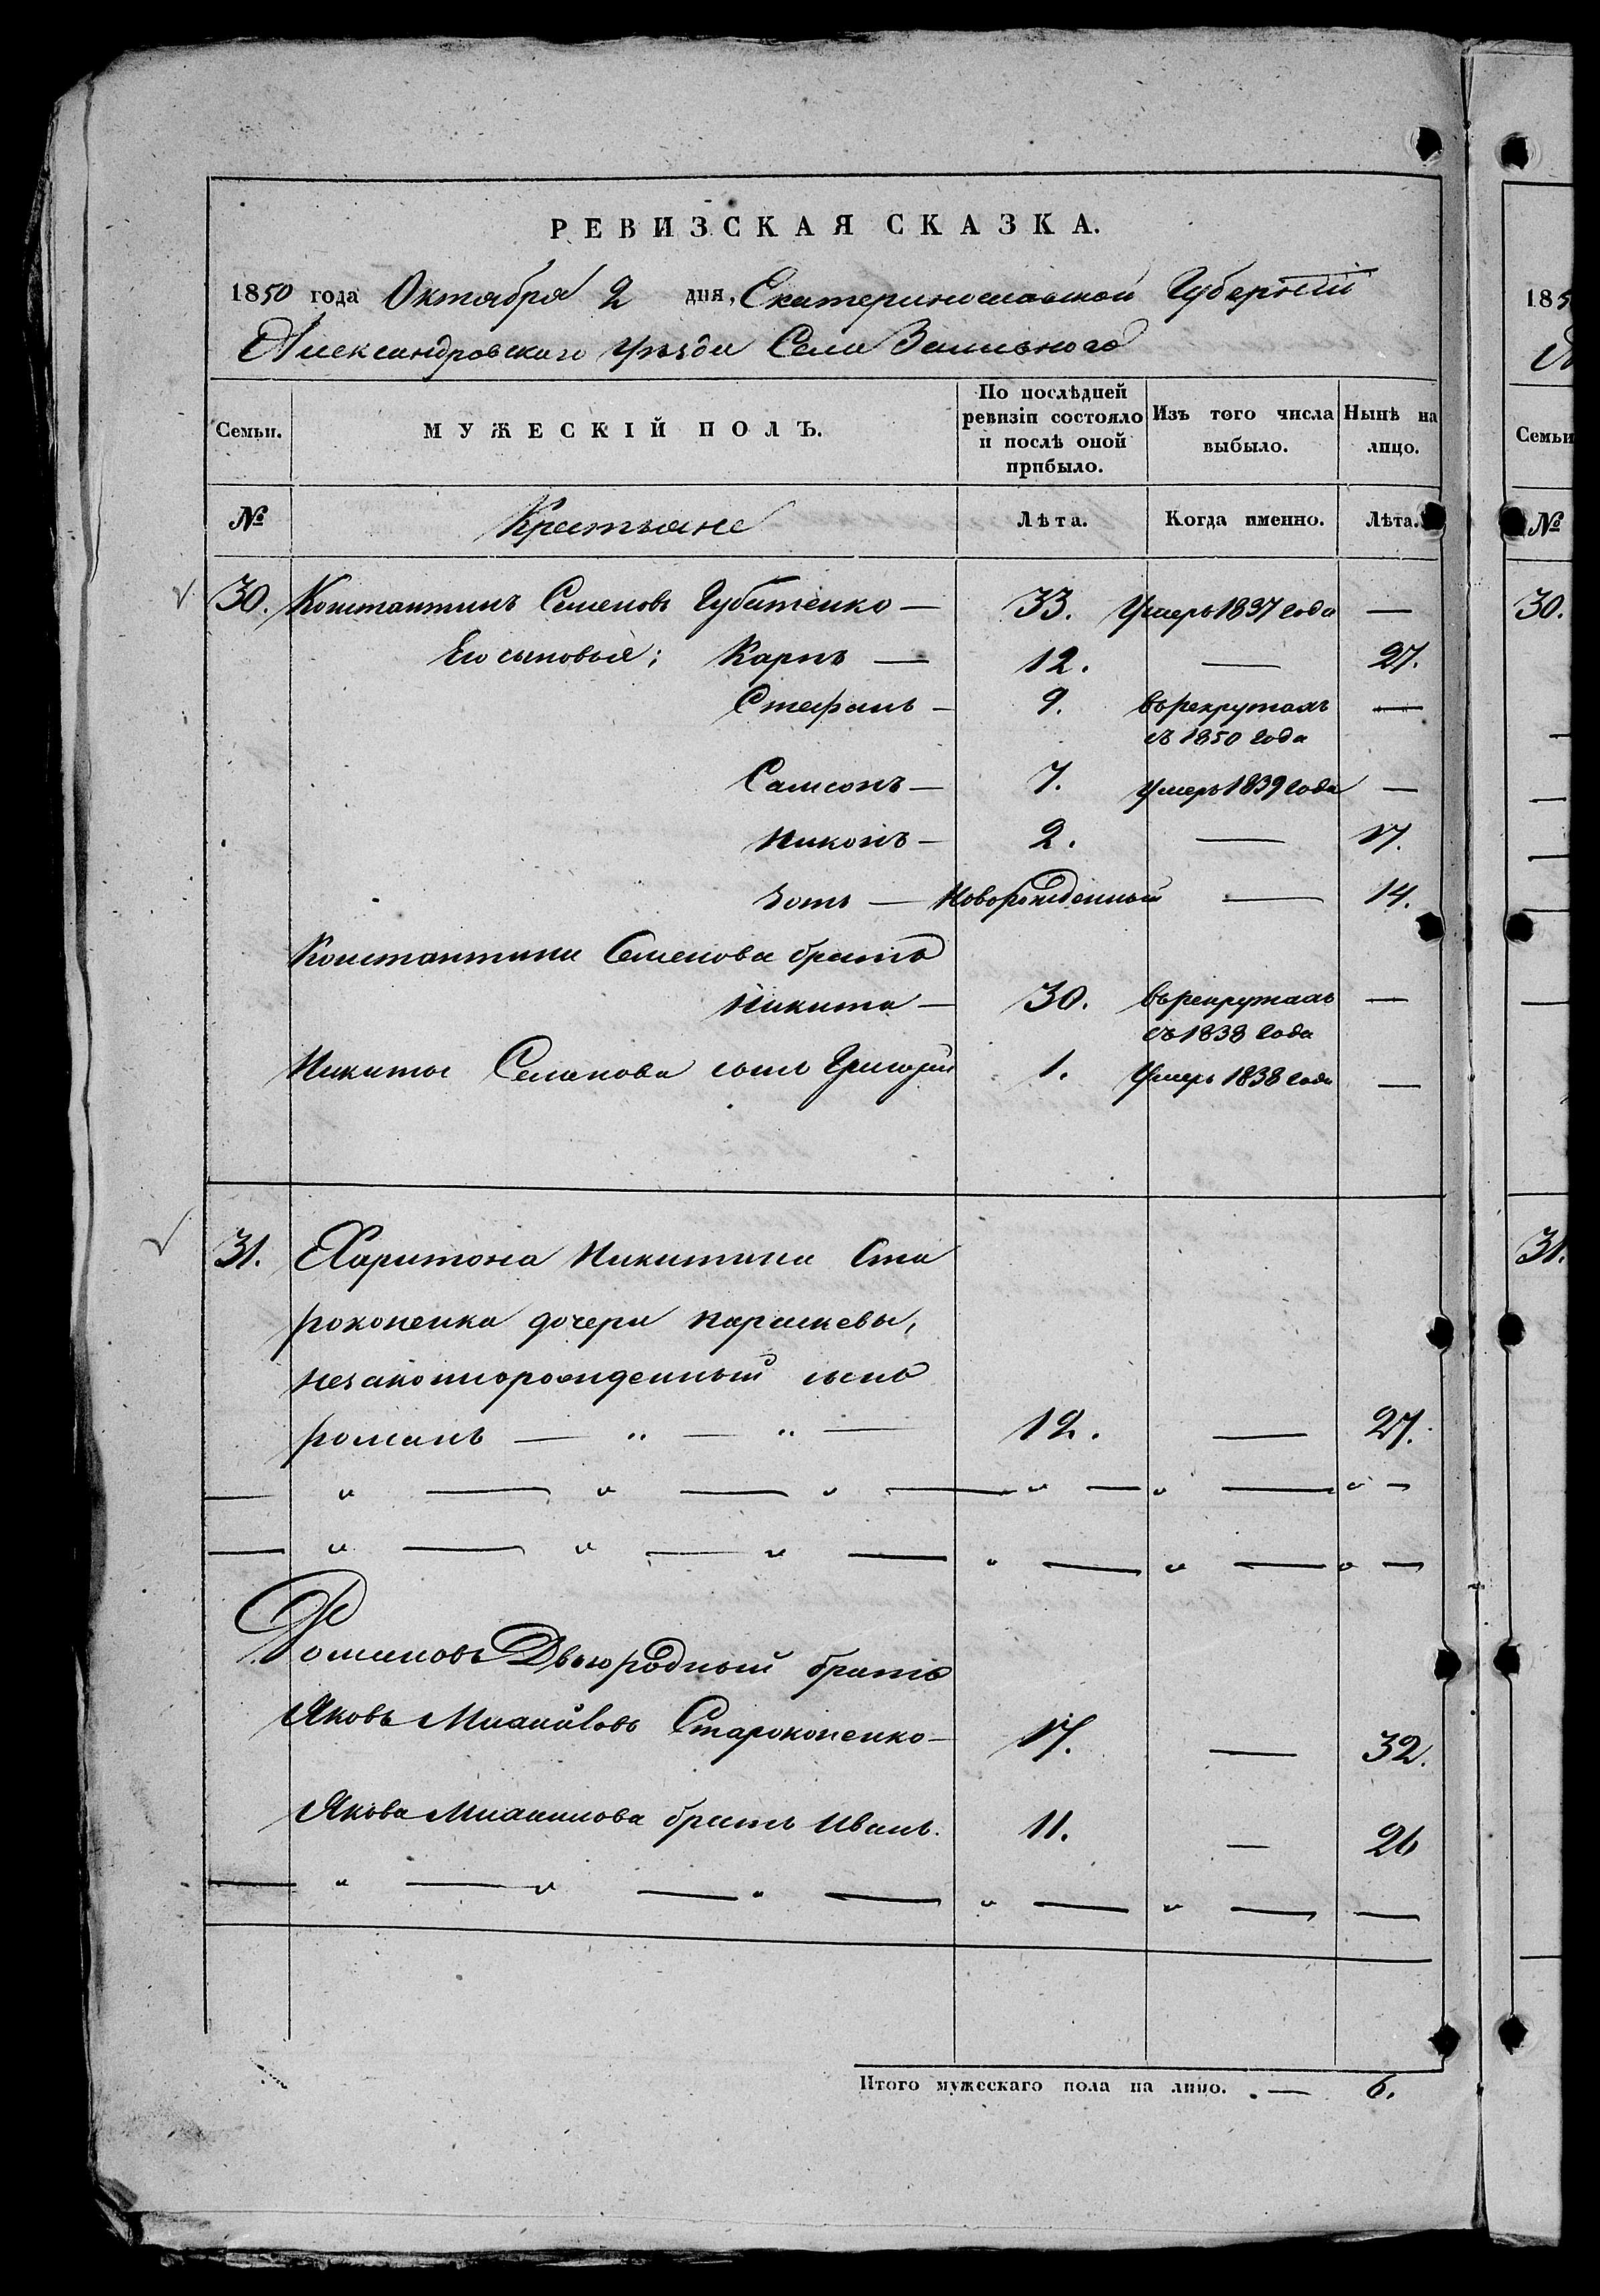 РЕВИЗСКАЯ СКАЗКА.
1850 года Октября 2 дня, Екатеринославской Губерніи
Александровскаго Уѣзда Села Заливного
Семьи. МУЖЕСКІЙ ПОЛЪ. По послѣдней ревизіи состояло и послѣ оной прибыло. Изъ того числа выбыло. Нынѣ на лицо.
№ Крестьяне Лѣта. Когда именно. Лѣта.
30. Константинъ Семеновъ Губатенко — 33. Умеръ 1837 года —
Его сыновья; Карпъ — 12. — 27.
Стефанъ — 9. въ рекрутахъ —
съ 1850 года
Самсонъ — 7. умеръ 1839 года —
Никонъ — 2. — 17.
Зотъ — Новорожденный — 14.
Константина Семенова братъ
Никита — 30. въ рекрутахъ —
съ 1838 года
Никиты Семенова сынъ Григорій 1. Умеръ 1838 года —
31. Харитона Никитина Ста
рокопенка дочери Параскевы,
незаконнорожденный сынъ
романъ — „ — „ — 12. — 27.
Романовъ Двоюродный братъ
Яковъ Михайловъ Старокопенко — 17. — 32.
Якова Михайлова братъ Иванъ. 11. — 26
Итого мужескаго пола на лицо. — 6.
185
Семьи
№
30.
31.